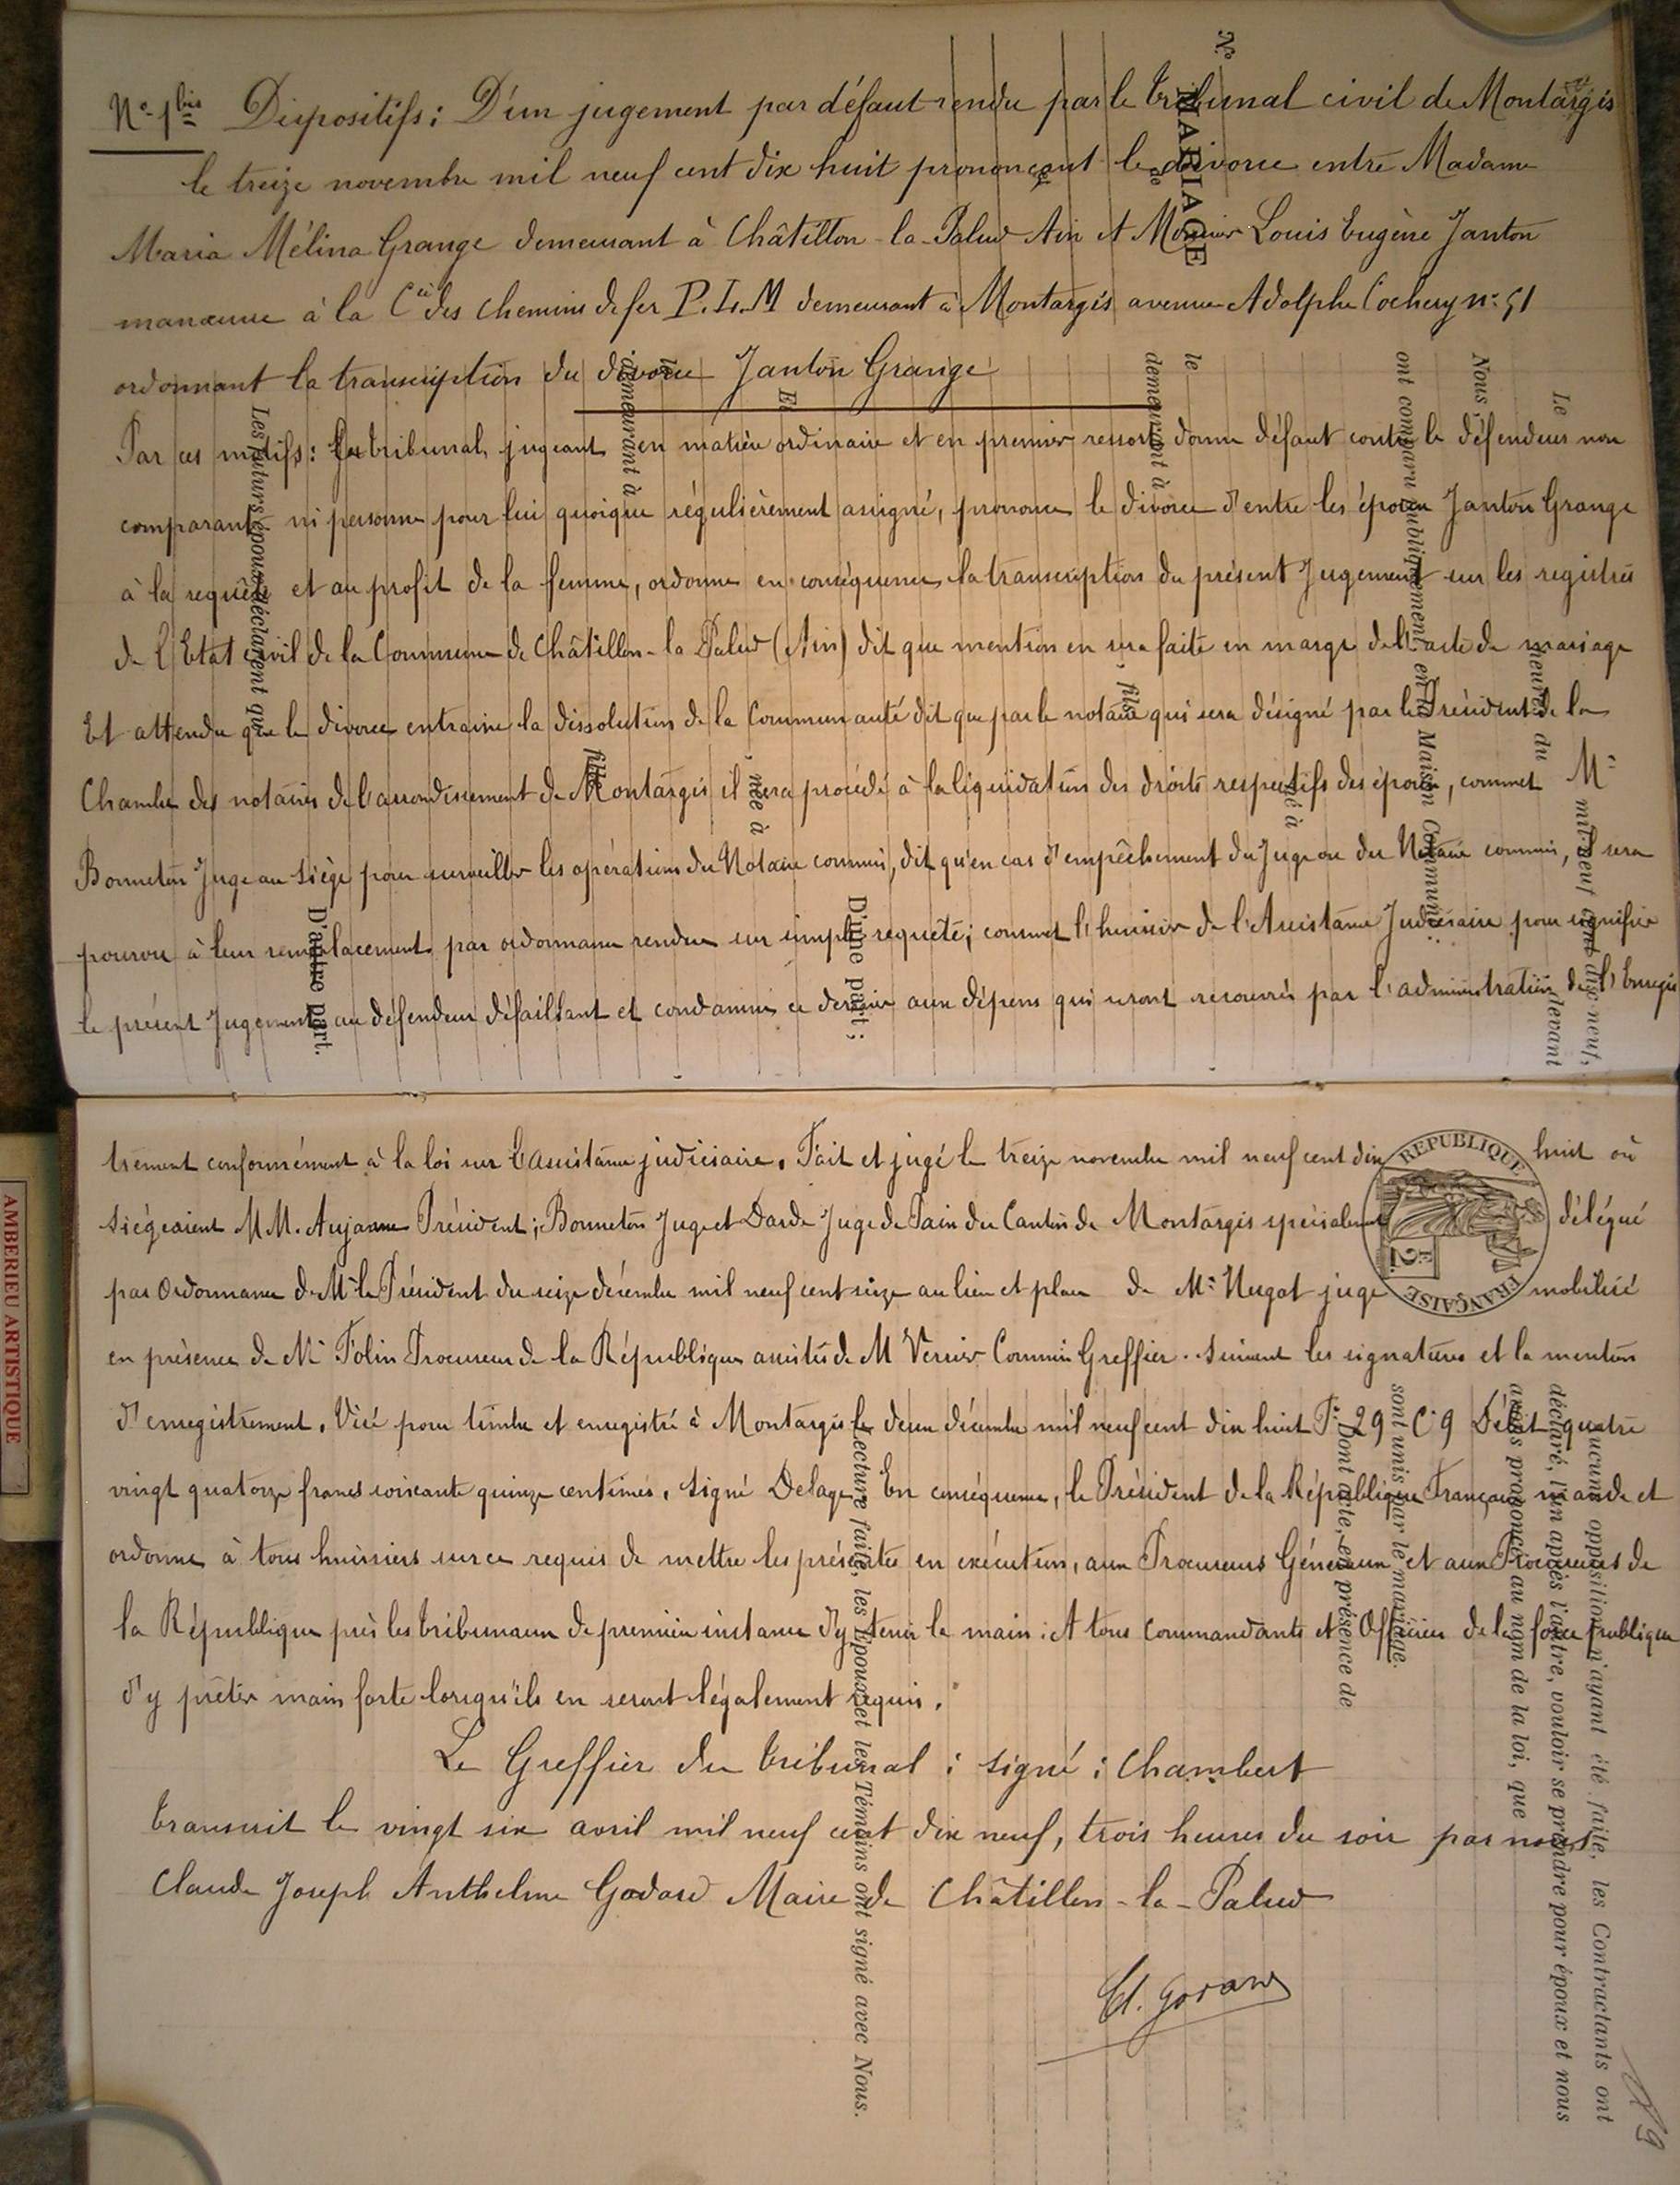 N° 1 bis Dispositifs : D'un jugement par défaut rendu par le tribunal civil de Montargis
le treize novembre mil neuf cent dix huit prononçant le divorce entre Madame
Maria Mélina Grange demeurant à Châtillon-la-Palud Ain et Monsieur Louis Eugène Janton
manœuvre à la Cie des Chemins de fer P.L.M demeurant à Montargis avenue Adolphe Cochery n° 51
ordonnant la transcription du divorce Janton Grange
Par ces motifs : Le tribunal, jugeant en matière ordinaire et en premier ressort donne défaut contre le défendeur non
comparant ni personne pour lui quoique régulièrement assigné, prononce le divorce d'entre les époux Janton Grange
à la requête et au profit de la femme, ordonne en conséquence la transcription du présent Jugement sur les registres
de l'Etat civil de la Commune de Châtillon-la Palud (Ain) dit que mention en sera faite en marge de l'acte de mariage
Et attendu que le divorce entraine la dissolution de la Communauté dit que par le notaire qui sera désigné par le Président de la
Chambre des notaires de l'arrondissement de Montargis il sera procédé à la liquidation des droits respectifs des époux, commet Mr
Bonneton Juge au siège pour surveiller les opérations du Notaire commis, dit qu'en cas d'empêchement du Juge ou du Notaire commis, il sera
pourvu à leur remplacement par ordonnance rendue sur simple requête ; commet l'huissier de l'Assistance Judiciaire pour signifier
le présent Jugement au défendeur défaillant et condamne ce dernier aux dépens qui seront recouvrés par l'administration de l'Enregis
trement conformément à la loi sur l'assistance judiciaire. Fait et jugé le treize novembre mil neuf cent dix huit où
siégeaient MM. Aujanne Président ; Bonneton Juge et Darde Juge de Paix du Canton de Montargis spécialement délégué
par Ordonnance de Mr le Président du seize décembre mil neuf cent seize au lieu et place de Mr Nugot juge mobilisé
en présence de Mr Folin Procureur de la République assistés de M Verrier Commis Greffier. Suivent les signatures et la mention
d'enregistrement. Visé pour timbre et enregistré à Montargis le deux décembre mil neuf cent dix huit F° 29 C 9 Débit quatre
vingt quatorze francs soixante quinze centimes. Signé Delage. En conséquence, le Président de la République Française mande et
ordonne à tous huissiers sur ce requis de mettre les présentes en exécution, aux Procureurs Généraux et aux Procureurs de
la République près les tribunaux de première instance d'y tenir la main : et tous Commandants et Officiers de la force publique
d'y prêter main forte lorsqu'ils en seront légalement requis.
Le Greffier du tribunal : signé : Chambert
transcrit le vingt six avril mil neuf cent dix neuf, trois heures du soir par nous
Claude Joseph Anthelme Godard Maire de Châtillon-la-Palud
Cl. Godard
N°
MARIAGE
de
Le mil neuf cent dix-neuf,
heures du devant
Nous
ont comparu publiquement en la Maison Commune :
le né à
demeurant à fils
D'une part ;
Et
le née à
demeurant à fille
D'autre part.
Les futurs époux déclarent que
Aucune opposition n'ayant été faite, les Contractants ont
déclaré, l'un après l'autre, vouloir se prendre pour époux et nous
avons prononcé au nom de la loi, que
sont unis par le mariage.
Dont acte, en présence de
Lecture faite, les Epoux et les Témoins ont signé avec Nous.
REPUBLIQUE FRANÇAISE
2 F.
AMBERIEU ARTISTIQUE